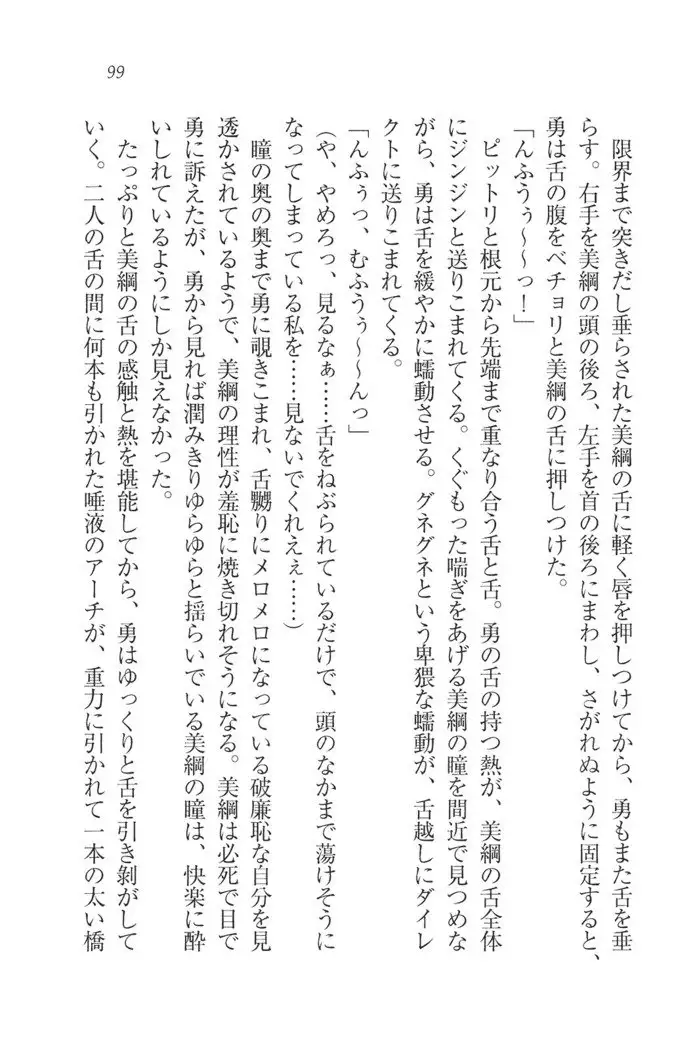 99
限界まで突きだし垂らされた美綱の舌に軽く唇を押しつけてから、勇もまた舌を垂
らす。右手を美綱の頭の後ろ、左手を首の後ろにまわし、さがれぬように固定すると、
勇は舌の腹をベチョリと美綱の舌に押しつけた。
「んふうぅ〜〜っ！」
ピットリと根元から先端まで重なり合う舌と舌。勇の舌の持つ熱が、美綱の舌全体
にジンジンと送りこまれてくる。くぐもった喘ぎをあげる美綱の瞳を間近で見つめな
がら、勇は舌を緩やかに蠕動させる。グネグネという卑猥な蠕動が、舌越しにダイレ
クトに送りこまれてくる。
「んふぅっ、むふうぅ〜〜んっ」
（や、やめろっ、見るなぁ……舌をねぶられているだけで、頭のなかまで蕩けそうに
なってしまっている私を……見ないでくれえぇ……）
瞳の奥の奥まで勇に覗きこまれ、舌嬲りにメロメロになっている破廉恥な自分を見
透かされているようで、美綱の理性が羞恥に焼き切れそうになる。美綱は必死で目で
勇に訴えたが、勇から見れば潤みきりゆらゆらと揺らいでいる美綱の瞳は、快楽に酔
いしれているようにしか見えなかった。
たっぷりと美綱の舌の感触と熱を堪能してから、勇はゆっくりと舌を引き剝がして
いく。二人の舌の間に何本も引かれた唾液のアーチが、重力に引かれて一本の太い橋